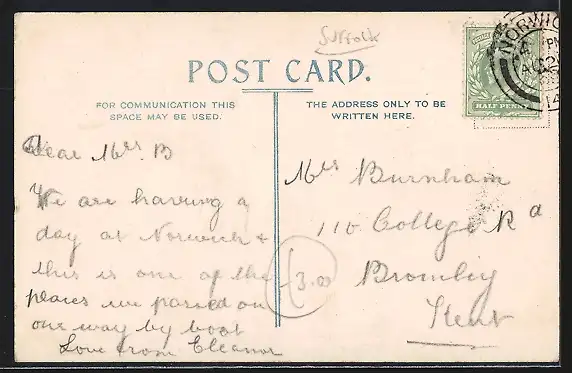 Suffolk
POST CARD.
FOR COMMUNICATION THIS
SPACE MAY BE USED.
THE ADDRESS ONLY TO BE
WRITTEN HERE.
HALF PENNY
NORWIC
PM
Dear Mrs. B
We are having a
day at Norwich &
this is one of the
places we passed on
our way by boat
Love from Eleanor
Mrs Burnham
110 College Rd
Bromley
Kent
3.00